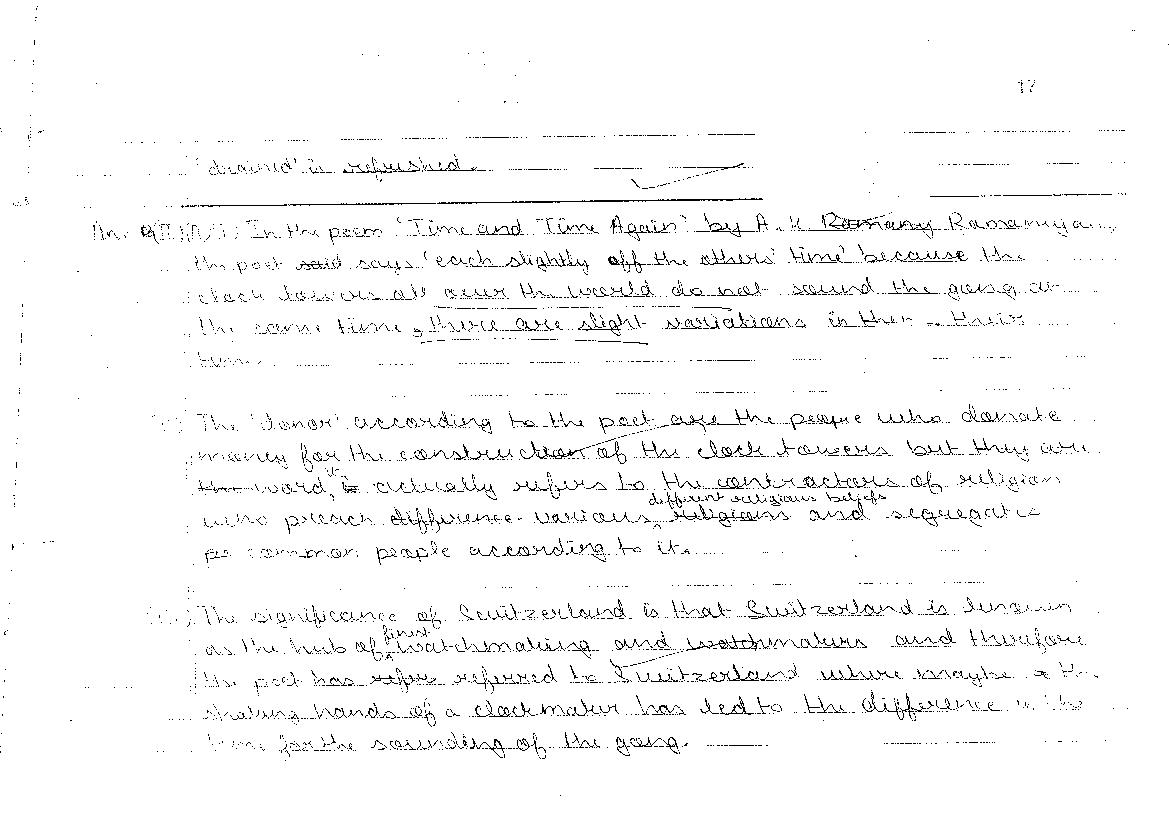 17
'drained' is refreshed.
An. In the poem 'Time and Time Again' by A.K Romany Ramanuja
the poet said says 'each slightly off the others' time' because the
clock towers all over the world do not sound the gong at
the same time, there are slight variations in their
time.
The 'donor' according to the poet are the people who donate
money for the construction of the clock towers but they are
the word, is actually refers to the contractors of religion
different religious beliefs
who preach difference various religions and segregate
pe common people according to it.
The significance of Switzerland is that Switzerland is known
finest
as the hub of watchmaking and watchmakers and therefore
the poet has refer referred to Switzerland where maybe the
shaking hands of a clockmaker has led to the difference in the
time for the sounding of the gong.